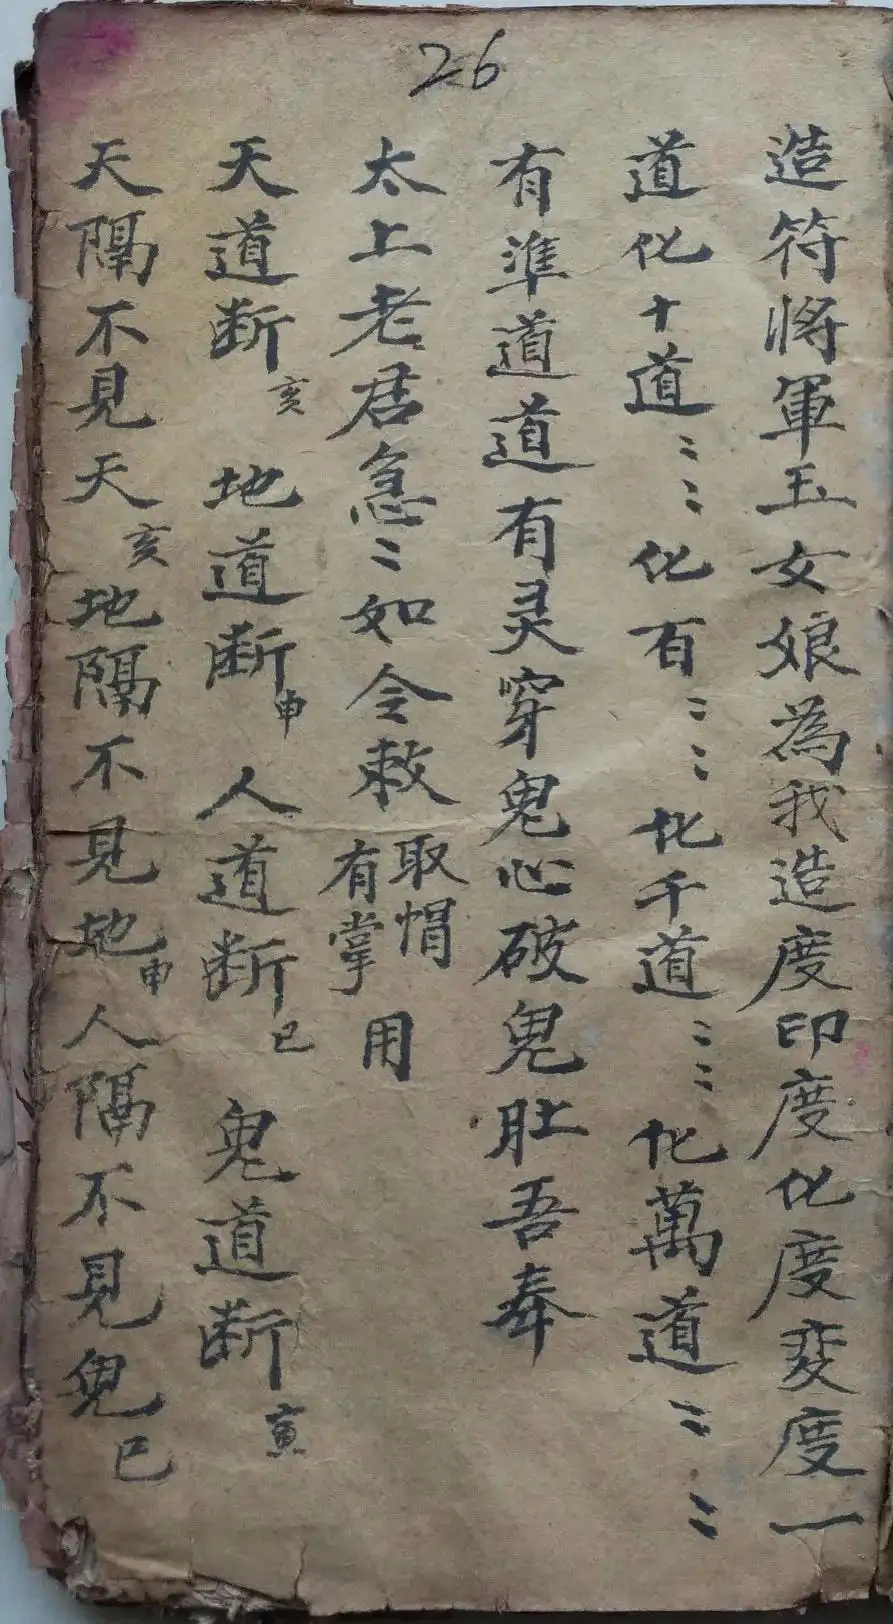 26
造符將軍玉女娘為我造度印度化度变度一
道化十道〻〻化百〻〻化千道〻〻化萬道〻〻
有準道道有灵穿鬼心破鬼肚吾奉
太上老君急〻如令敕 取帽 有掌 用
天道断亥 地道断申 人道断巳 鬼道断寅
天隔不見天亥 地隔不見地申 人隔不見鬼巳